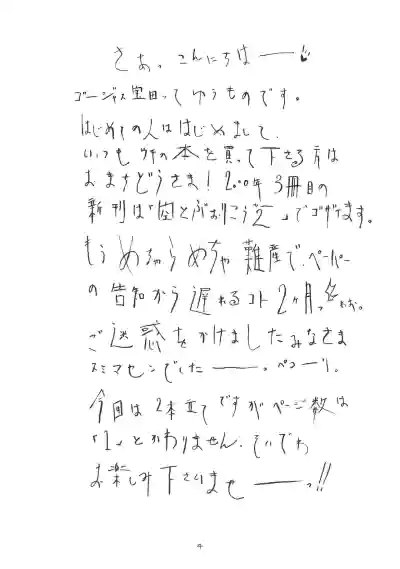 さぁっ、こんにちはーー♥
ゴージャス宝田ってゆうものです。
はじめての人ははじめまして、
いつもウチの本を買って下さる方は
おまちどうさま！2000年3冊目の
新刊は「空とぶおりこう2」でゴザイます。
もうめちゃらめちゃ難産で、ペーパー
の告知から遅れるコト2ヶ月、
ご迷惑をかけましたみなさま
スミマセンでしたーーっ。ペコーリ。
今回は2本立てですがページ数は
「1」とかわりません、そいでわ
お楽しみ下さいませーーっ!!
4